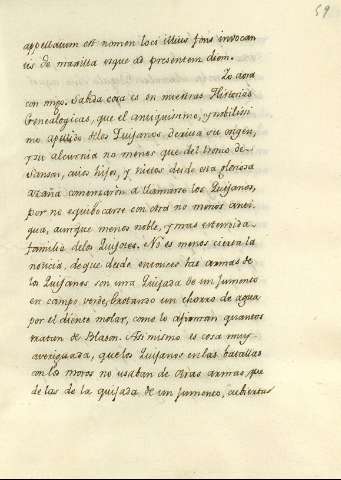 59
appellatum est nomen loci illius fons invocan
tis de maxilla usque ad presentem diem.
Lo otro
con mgo. Sabida cosa es en nuestras Historias
Genealogicas, que el antiquissimo, y nobilissi
mo apellido delos Quijanos deriva su origen,
y su alcurnia no menos que del tronco de
Sanson, cuios hijos, y nietos desde esta gloriosa
azaña comenzaron a llamarse los Quijanos,
por no equibocarse con otra no menos anti
gua, aunque menos noble, y mas estendida
familia delos Quijotes. No es menos cierta la
noticia, de que desde entonces las armas de
los Quijanos son una Quijada de un Jumento
en campo verde, brotando un chorro de agua
por el diente molar, como lo afirman quantos
tratan de Blason. Asi mismo es cosa muy
averiguada, que los Quijanos en las batallas
con los moros no usaban de otras armas, que
de las de la quijada de un Jumento, cubiertas